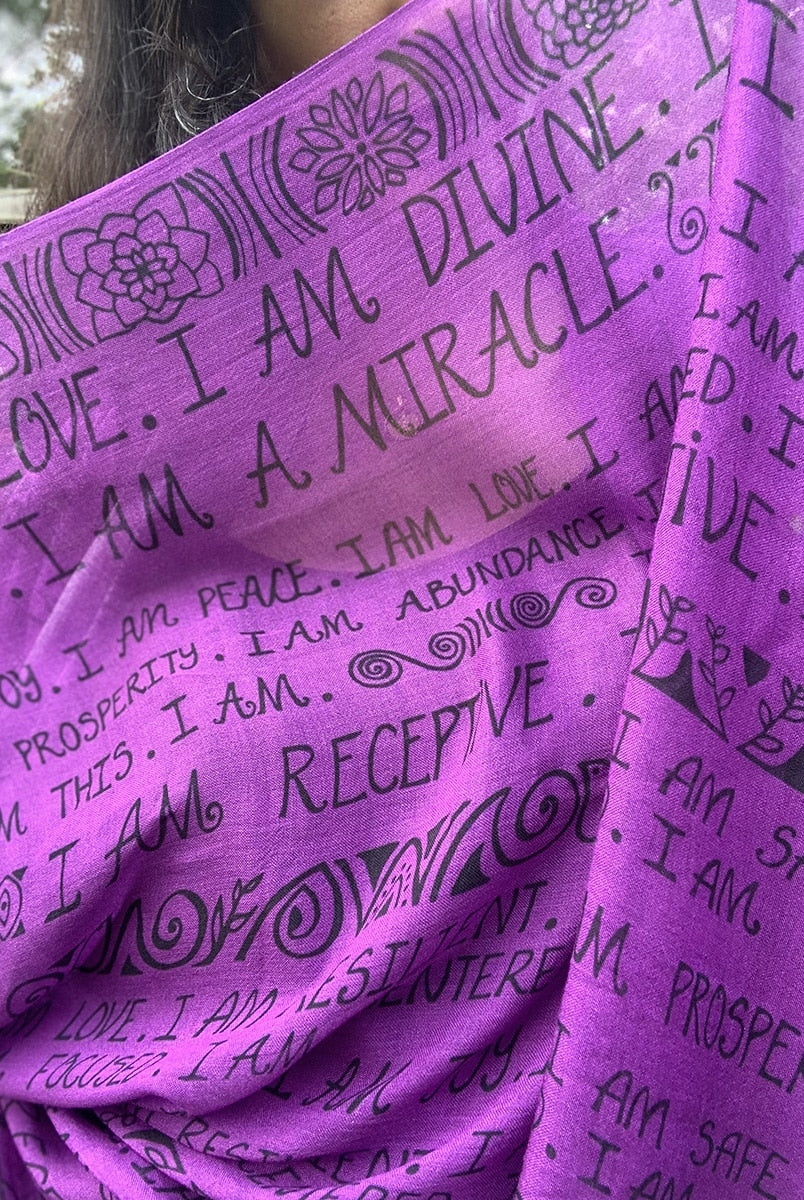 LOVE. I AM DIVINE. I
. I AM A MIRACLE.
OY. I AM PEACE. I AM LOVE. I AM
PROSPERITY. I AM ABUNDANCE. I
M THIS. I AM.
I AM RECEPTIVE.
LOVE. I AM RESILIENT.
FOCUSED. I AM CENTERE
I AM JOY. I
RESILIENT. I
I
I A
I AM
ED. I
TIVE.
I AM SA
. I AM
M PROSPER
I AM SAFE
. I AM